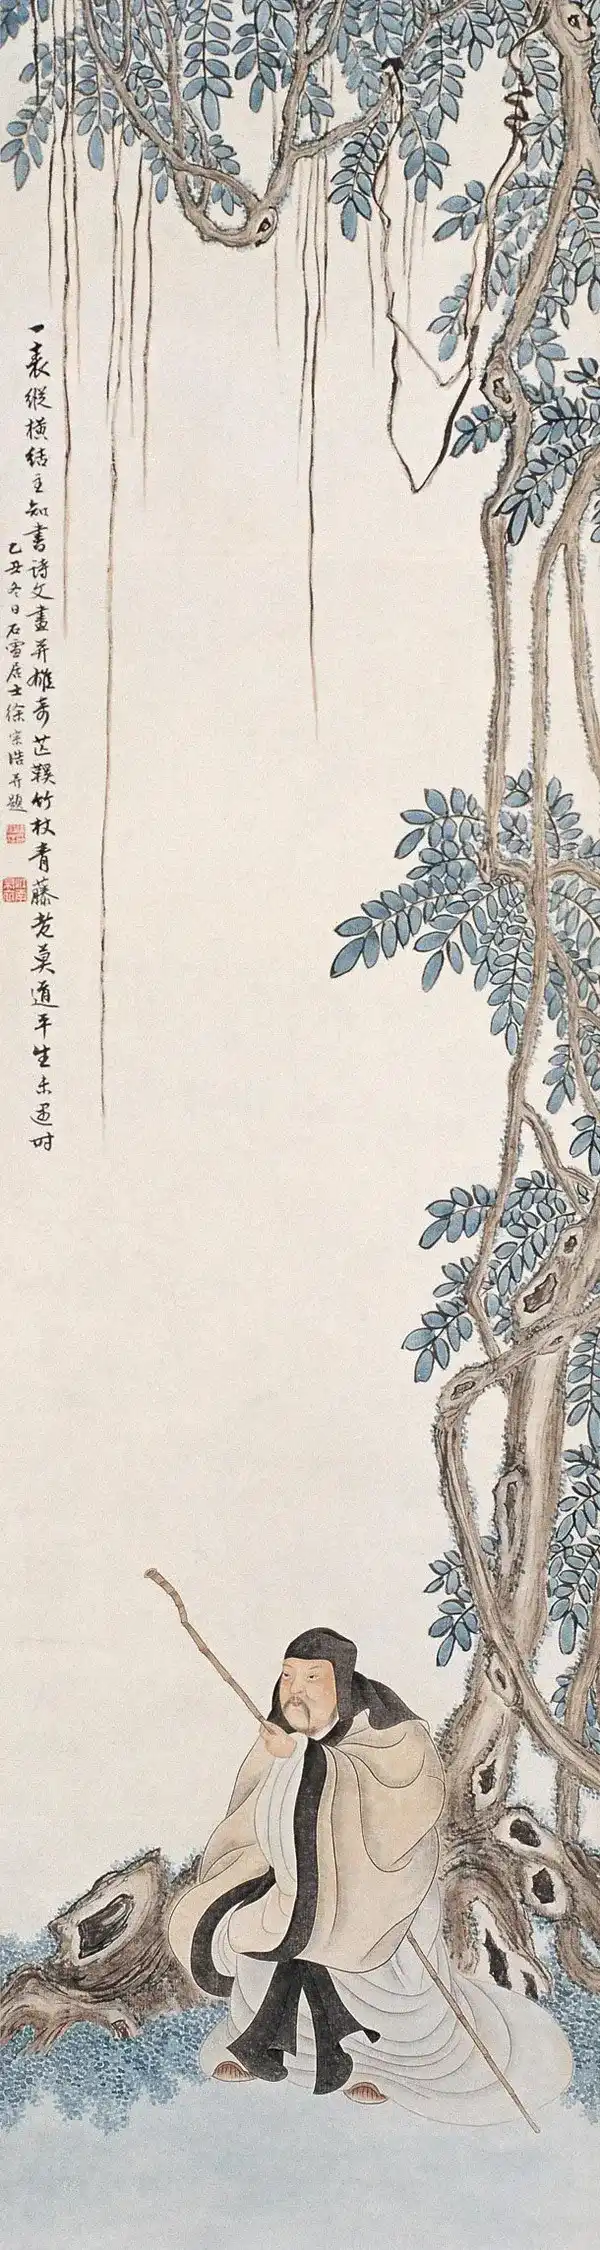 一表纵横结主知书诗文画并雄奇芒鞵竹杖青藤老莫道平生未遇时
乙丑冬日石雪居士徐宗浩并题